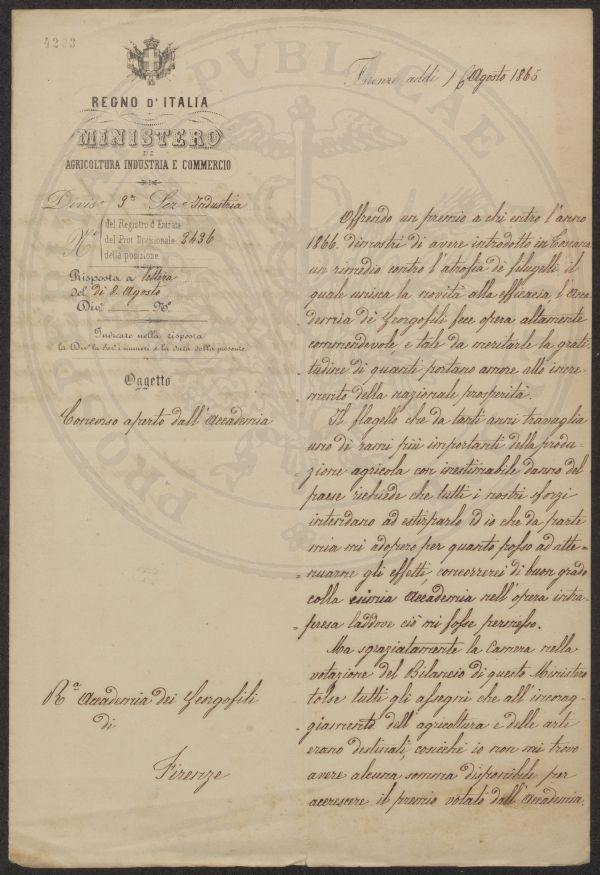 4203
REGNO D'ITALIA
MINISTERO
DI
AGRICOLTURA INDUSTRIA E COMMERCIO
Firenze addì 16 Agosto 1865
Divis.e 2a Sez.e Industria
N.o
del Registro d'Entrata
del Prot. Divisionale 2436
della posizione
Risposta a lettera
del dì 8. Agosto
Div.e N.o
Indicare nella risposta
la Div. la Sez. i numeri e la data della presente.
Oggetto
Concorso aperto dall'Accademia
R.a Accademia dei Georgofili
di
Firenze
Offrendo un premio a chi entro l'anno
1866 dimostri di avere introdotto in Toscana
un rimedio contro l'atrofia de filugelli il
quale unisca la novità alla efficacia, l'Acca-
demia de' Georgofili fece opera altamente
commendevole, e tale da meritarle la grati-
tudine di quanti portano amore allo incre-
mento della nazionale prosperità.
Il flagello che da tanti anni travaglia
uno de' rami più importanti della produ-
zione agricola con inestimabile danno del
paese richiede che tutti i nostri sforzi
intendano ad estirparlo ed io che da parte
mia mi adopero per quanto posso ad atte-
nuarne gli effetti, concorrerei di buon grado
colla esimia Accademia nell'opera intra-
presa laddove ciò mi fosse permesso.
Ma sgraziatamente la Camera nella
votazione del Bilancio di questo Ministero
tolse tutti gli assegni che all'incorag-
giamento dell'agricoltura e delle arti
erano destinati, cosicché io non mi trovo
avere alcuna somma disponibile per
accrescere il premio votato dall'Accademia.
PUBLICAE